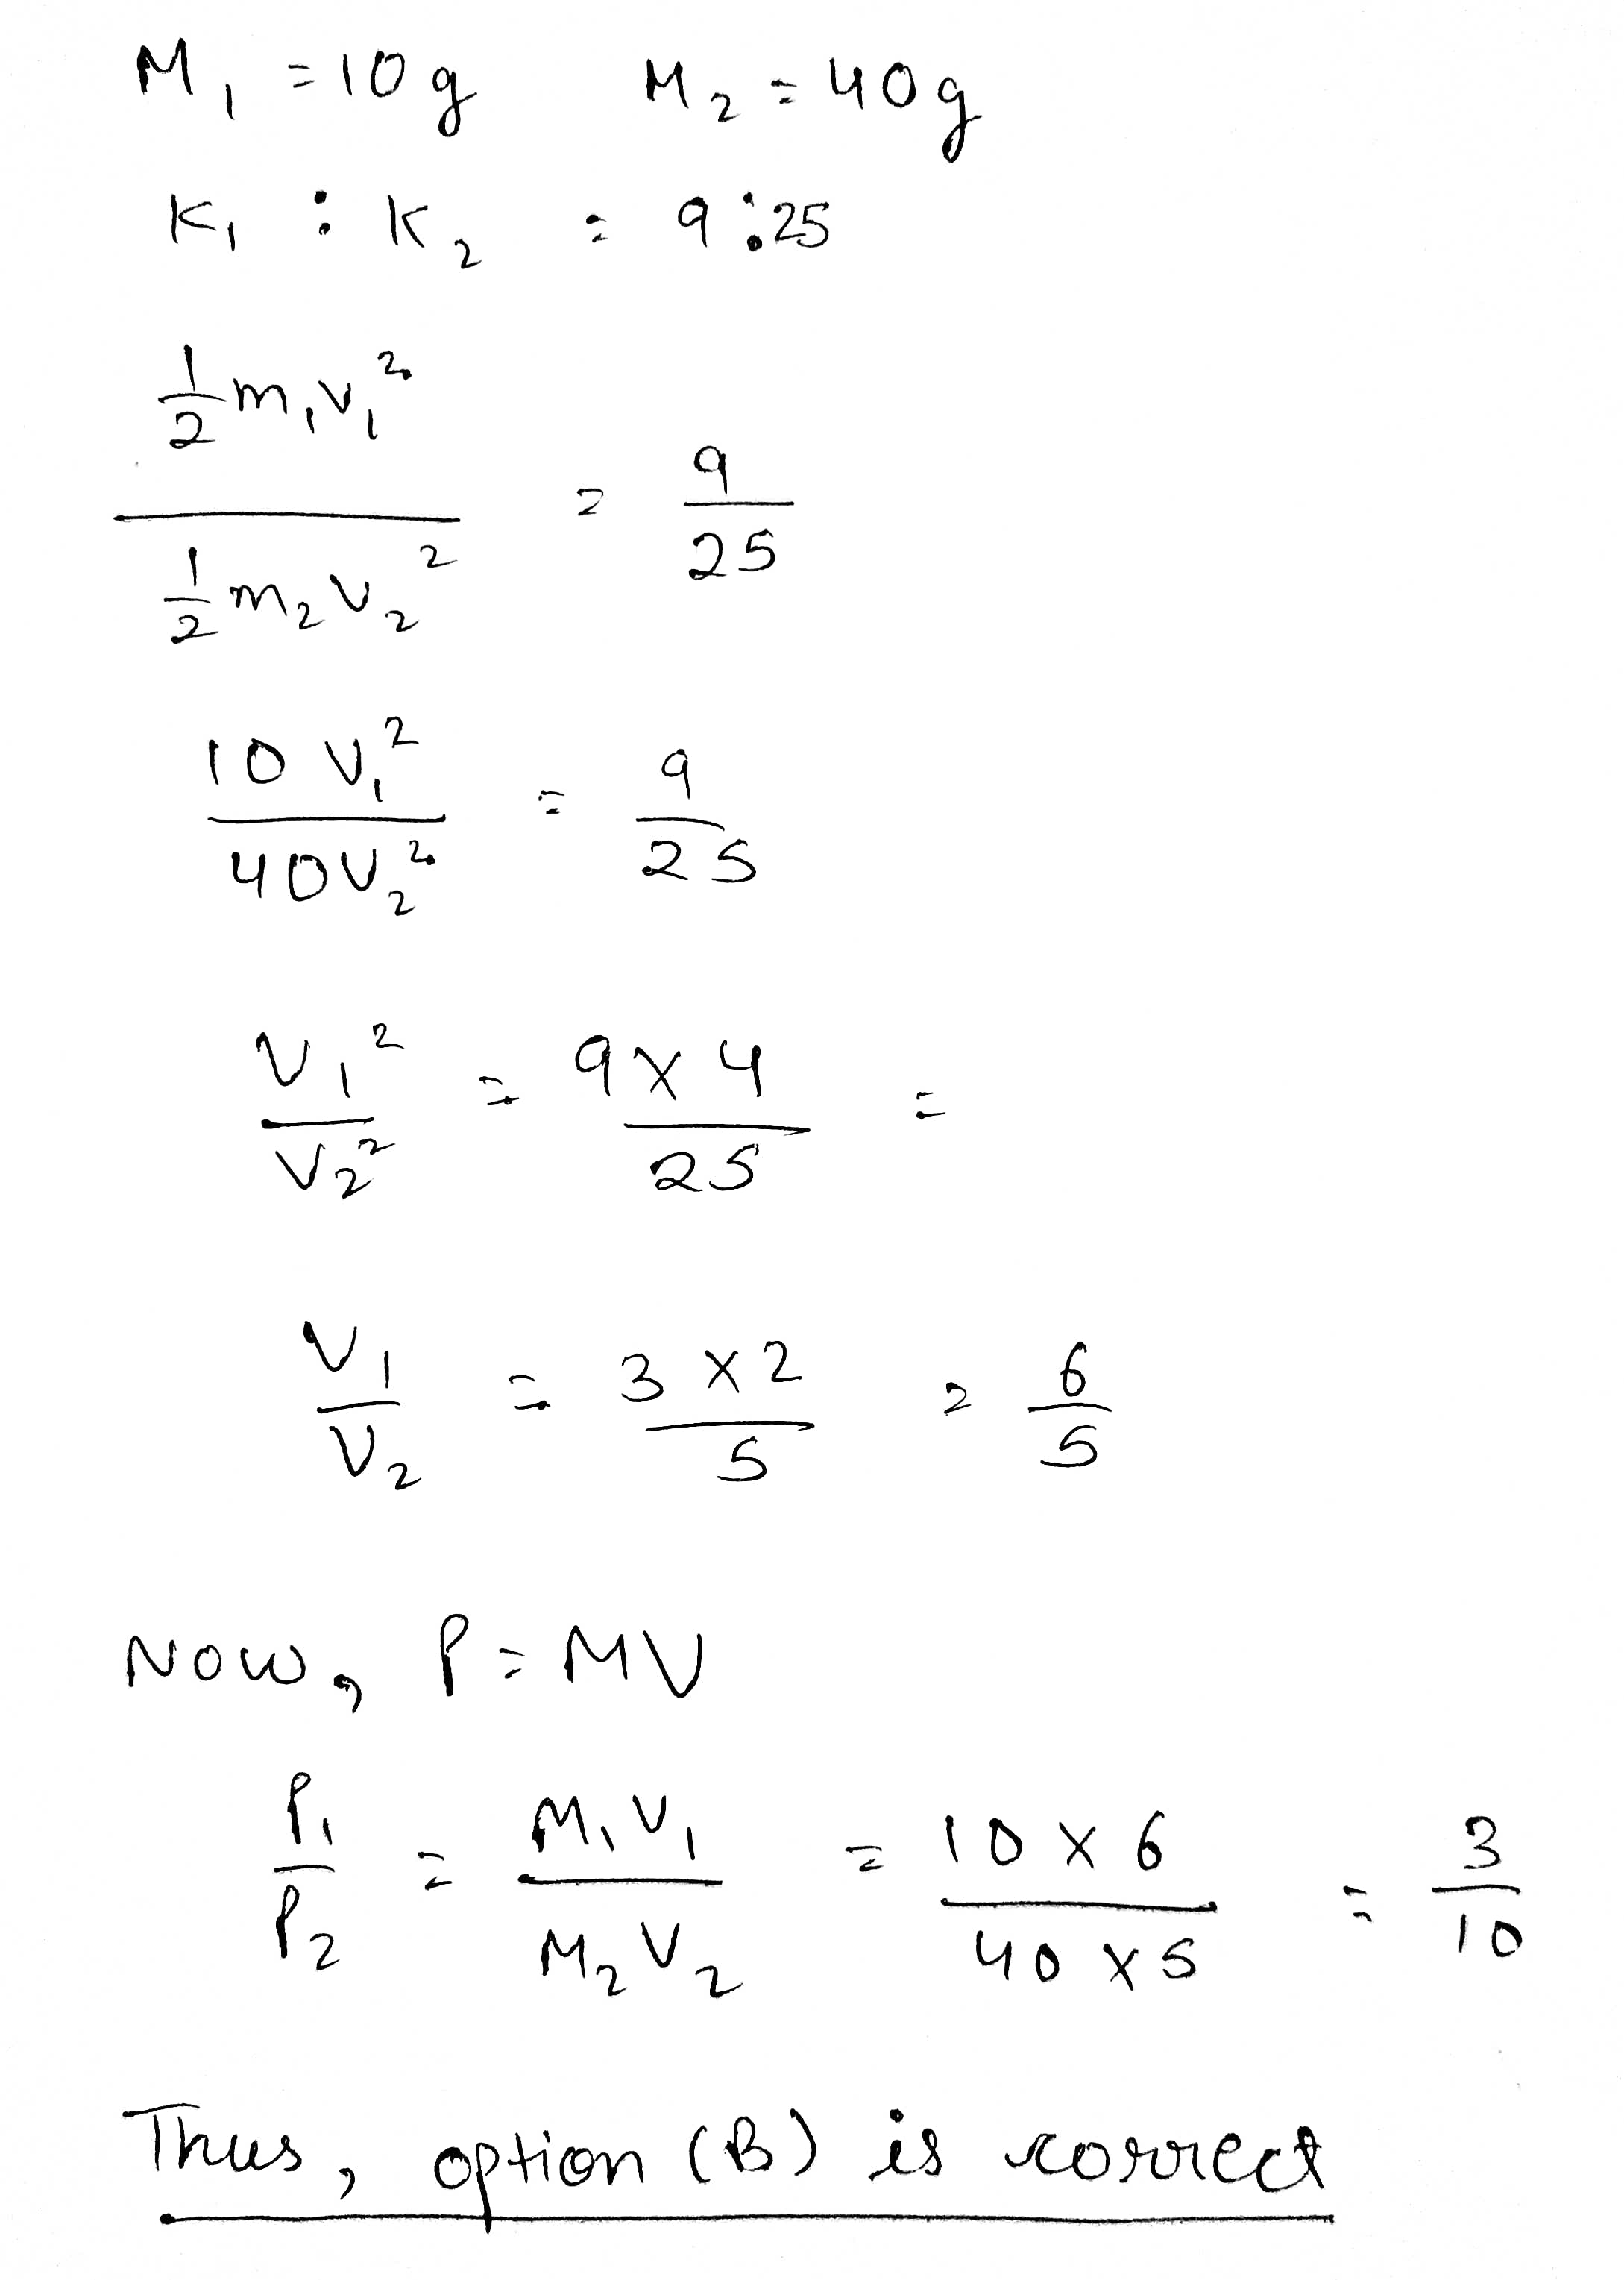 M₁ = 10 g M₂ = 40 g
K₁ : K₂ = 9 : 25
½ m₁v₁² / ½ m₂v₂² = 9/25
10 V₁² / 40V₂² = 9/25
V₁² / V₂² = 9 × 4 / 25 =
V₁ / V₂ = 3 × 2 / 5 = 6/5
Now, P = MV
P₁ / P₂ = M₁V₁ / M₂V₂ = 10 × 6 / 40 × 5 = 3/10
Thus, option (B) is correct